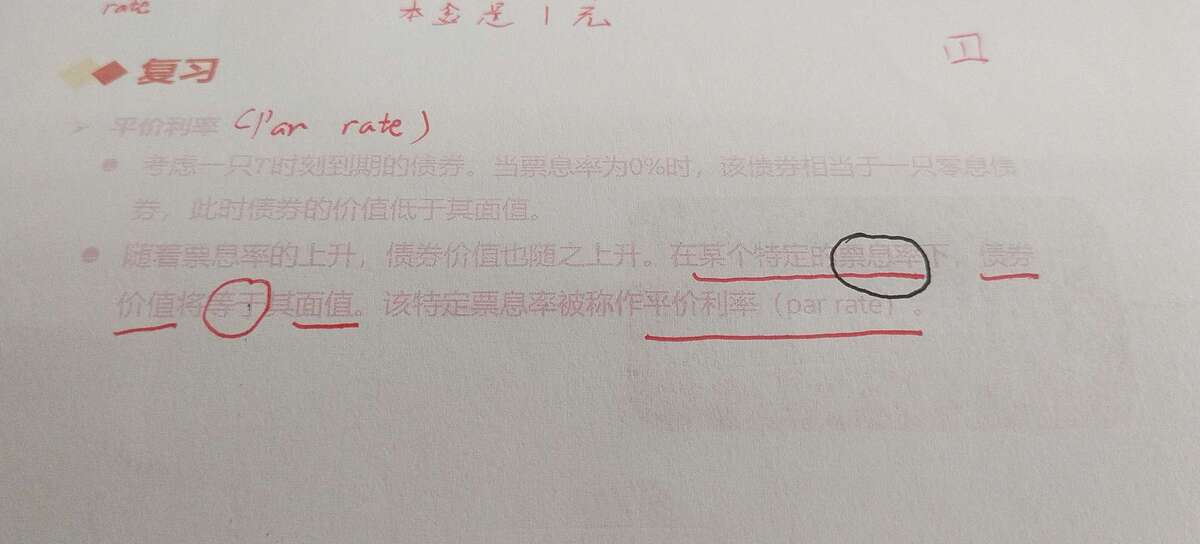 rate
本金是1元
复习
平价利率 (Par rate)
考虑一只T时刻到期的债券。当票息率为0%时，该债券相当于一只零息债
券，此时债券的价值低于其面值。
随着票息率的上升，债券价值也随之上升。在某个特定的票息率下，债券
价值将等于其面值。该特定票息率被称作平价利率（par rate）。